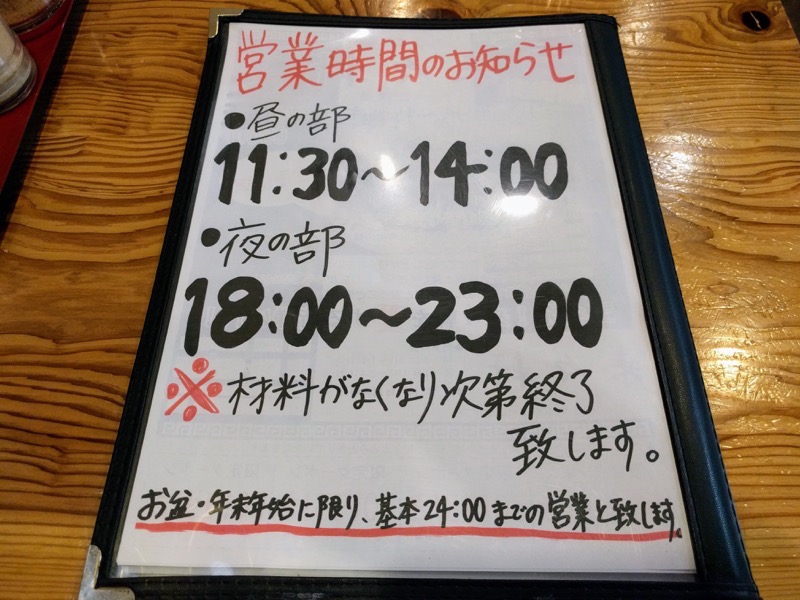 営業時間のお知らせ
●昼の部
11:30～14:00
●夜の部
18:00～23:00
※材料がなくなり次第終了
致します。
お盆・年末年始に限り、基本24:00までの営業と致します。